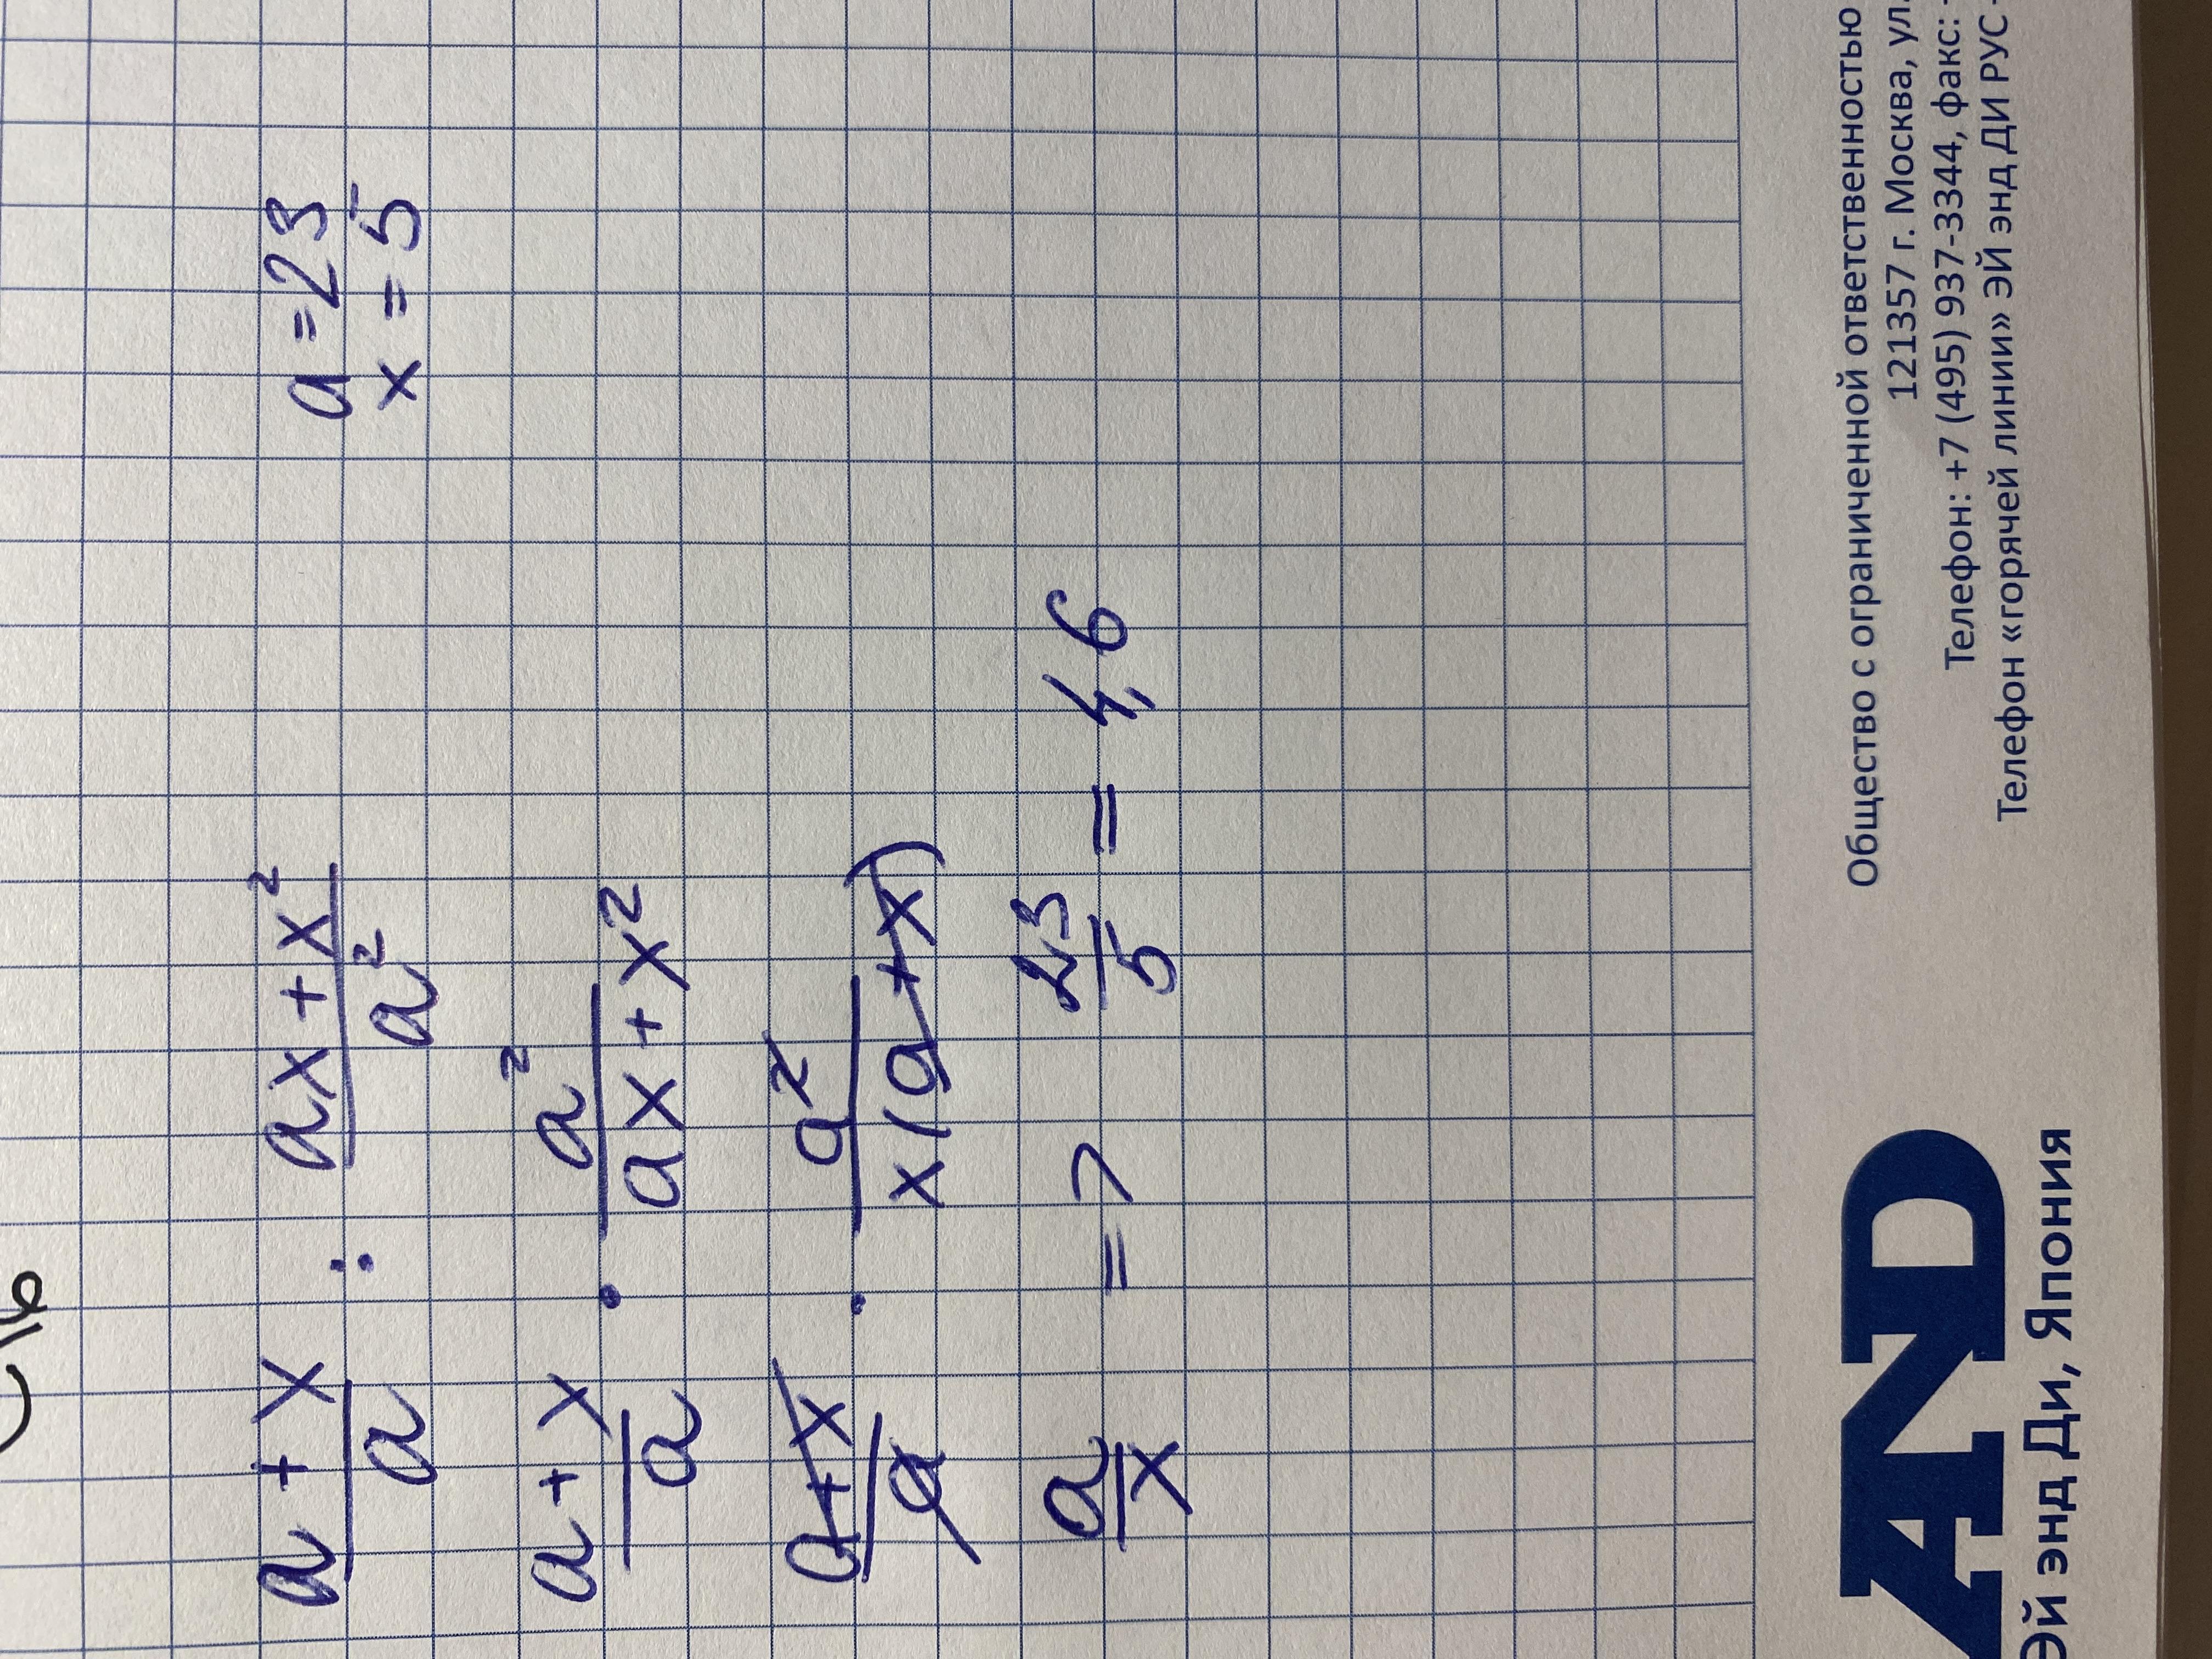 a + x / a : ax + x² / a²   a = 23
x = 5
a + x / a · a² / ax + x²
a + x / a · a² / x(a + x)
a / x => 23 / 5 = 4,6
AND
Эй энд Ди, Япония
Общество с ограниченной ответственностью
121357 г. Москва, ул.
Телефон: +7 (495) 937-3344, факс:
Телефон «горячей линии» ЭЙ энд ДИ РУС